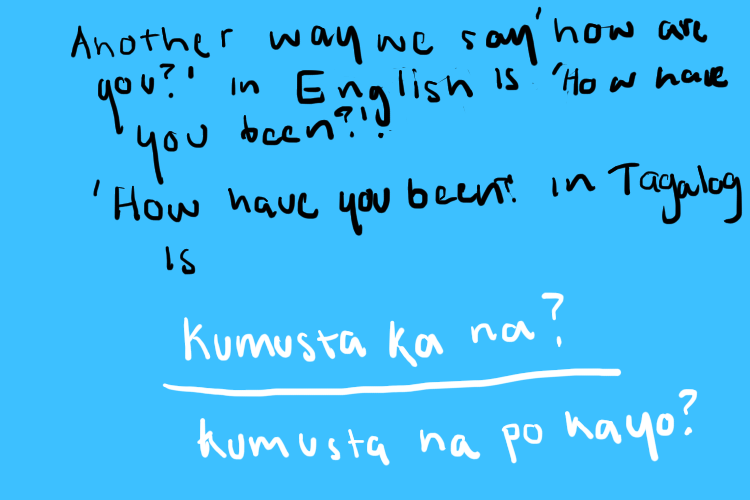 Another way we say 'how are
you?' in English is 'How have
you been?'.
'How have you been?' in Tagalog
is
Kumusta ka na?
kumusta na po kayo?